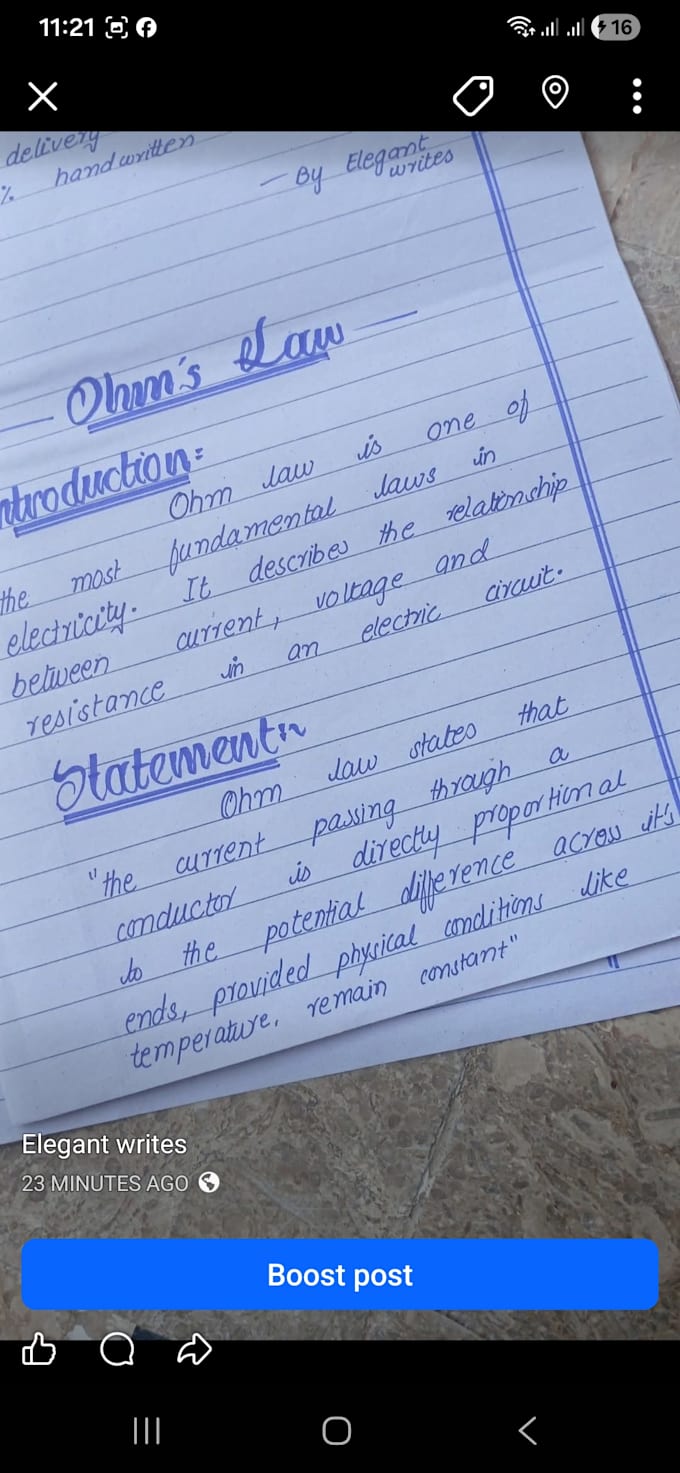 11:21
16
delivery
% handwritten
— By Elegant
writes
Ohm's Law
ntroduction:
Ohm law is one of
the most fundamental laws in
electricity. It describes the relationship
between current, voltage and
resistance in an electric circuit.
Statement:
Ohm law states that
"the current passing through a
conductor is directly proportional
to the potential difference across it's
ends, provided physical conditions like
temperature, remain constant"
Elegant writes
23 MINUTES AGO
Boost post